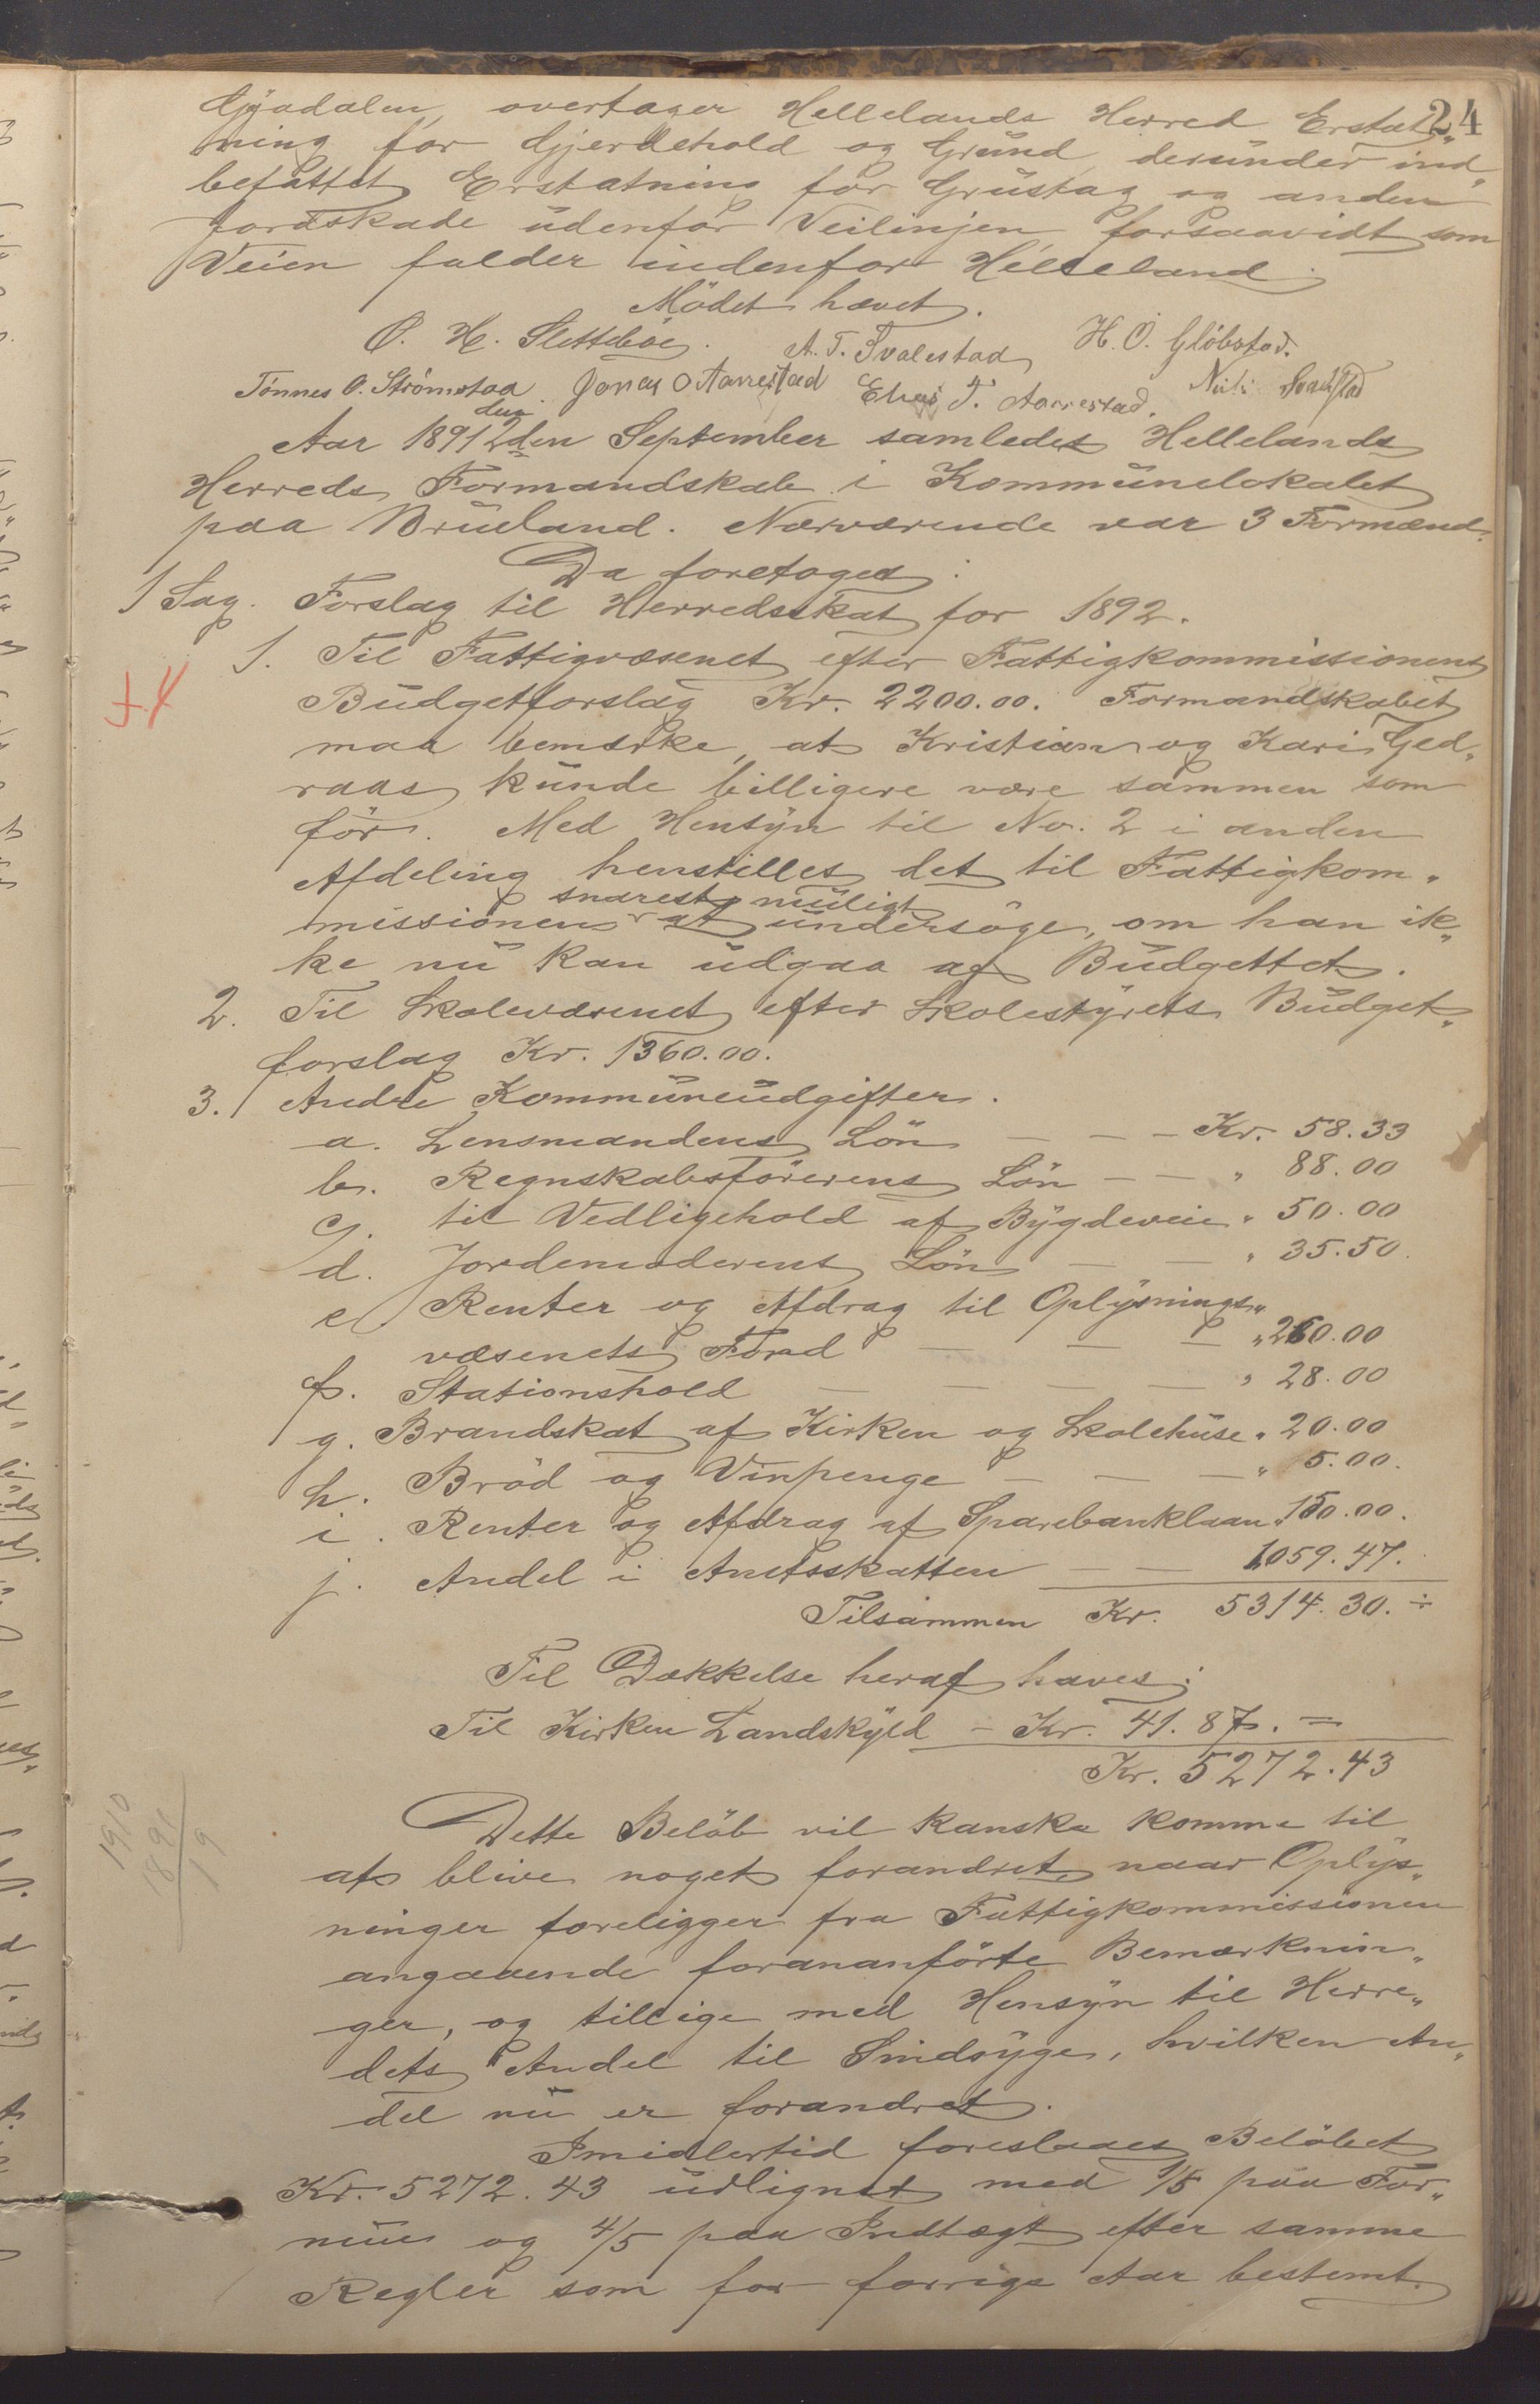 24
Gyadalen, overtager Hellelands Herred Erstat„
ning for Gjerdehold og Grund, derunder ind„
befattet Erstatning for Grustag og anden
Jordskade udenfor Veilinjen, forsaavidt som
Veien falder indenfor Helleland.
Mödet hævet.
O. H. Slettebøe. A. T. Svalestad H. O. Gløbstad.
Tønnes O. Strömstad. Jonas O Aarrestad Elias T. Aarrestad. Nils Svalstad
Aar 1891 den 2den September samledes Hellelands
Herreds Formandskab i Kommunelokalet
paa Brueland. Nærværende var 3 Formænd.
Da foretoges:
1 Sag. Forslag til Herredsskat for 1892.
1. Til Fattigvæsenet efter Fattigkommissionens
Budgetforslag Kr. 2200.00. Formandskabet
maa bemærke, at Kristian og Kari Ged„
raas kunde billigere være sammen som
för. Med Hensyn til No. 2 i anden
Afdeling henstilles det til Fattigkom„
missionen snarest muligt at undersöge, om han ik„
ke nu kan udgaa af Budgettet.
2. Til Skolevæsenet efter Skolestyrets Budget„
forslag Kr. 1360.00.
3. Andre Kommuneudgifter.
a. Lensmandens Lön — — — Kr. 58.33
b. Regnskabsförerens Lön — — „ 88.00
c. til Vedligehold af Bygdeveie „ 50.00
d. Jordemoderens Lön — — „ 35.50.
e. Renter og Afdrag til Oplysnings„
væsenets Fond — — — „ 260.00
f. Stationshold — — — — „ 28.00
g. Brandskat af Kirken og Skolehuse „ 20.00
h. Bröd og Vinpenge — — — „ 5.00.
i. Renter og Afdrag af Sparebanklaan „ 150.00.
j. Andel i Amtsskatten — — 1059.47.
Tilsammen Kr. 5314.30. ÷
Til Dækkelse heraf haves:
Til Kirken Landskyld — Kr. 41.87. =
Kr. 5272.43
Dette Belöb vil kanske komme til
at blive noget forandret, naar Oplys„
ninger foreligger fra Fattigkommissionen
angaaende forananförte Bemærknin„
ger, og tillige med Hensyn til Herre„
dets Andel til Sindsyge, hvilken An„
del nu er forandret.
Imidlertid foreslaaes Belöbet
Kr. 5272.43 udlignet med 1/5 paa For„
mue og 4/5 paa Indtægt efter samme
Regler som for forrige Aar bestemt.
1910
1891
19